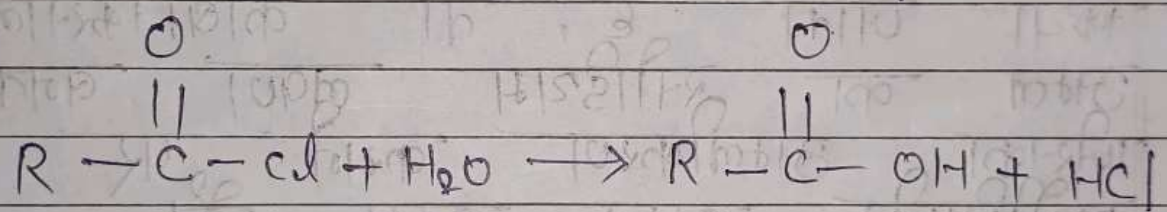 O O
|| ||
R - C - Cl + H₂O → R - C - OH + HCl